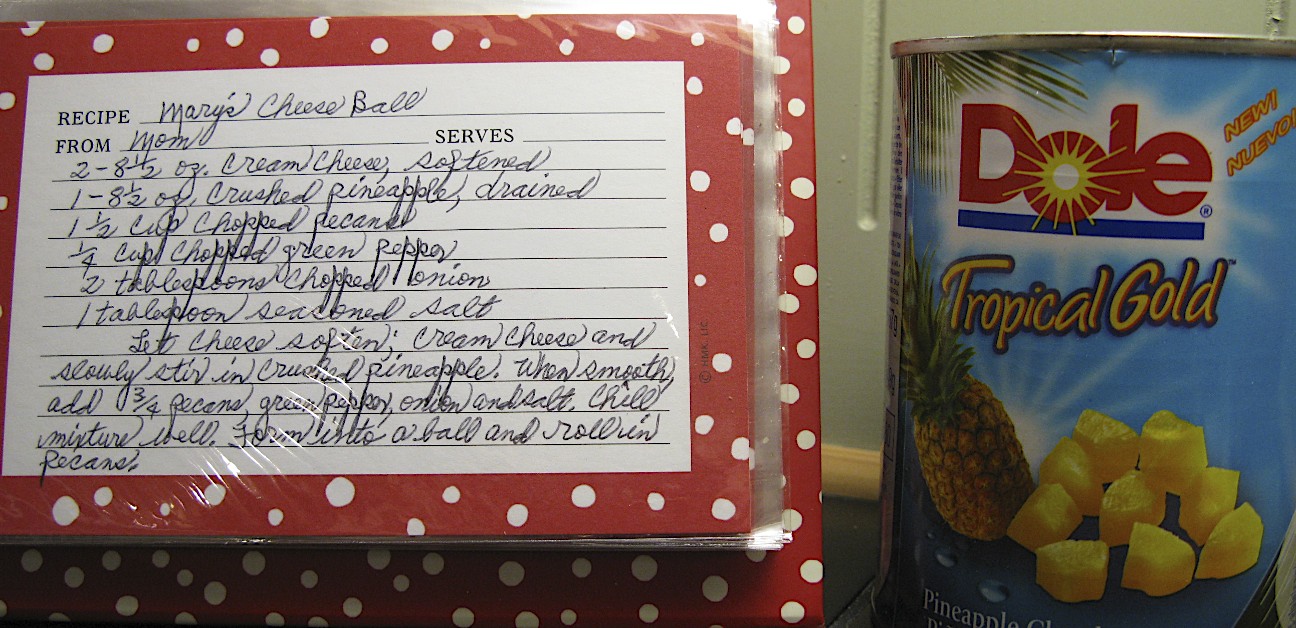 RECIPE Mary's Cheese Ball
FROM Mom SERVES
2 - 8 1/2 oz. Cream Cheese, softened
1 - 8 1/2 oz. Crushed pineapple, drained
1 1/2 Cup Chopped pecans
1/4 Cup Chopped green pepper
2 tablespoons Chopped onion
1 tablespoon seasoned salt
Let Cheese soften; Cream Cheese and
slowly stir in Crushed pineapple. When smooth,
add 3/4 pecans, green pepper, onion and salt. Chill
mixture well. Form into a ball and roll in
pecans.
© HMK. LIC.
Dole®
NEW!
NUEVO!
Tropical Gold™
Pineapple